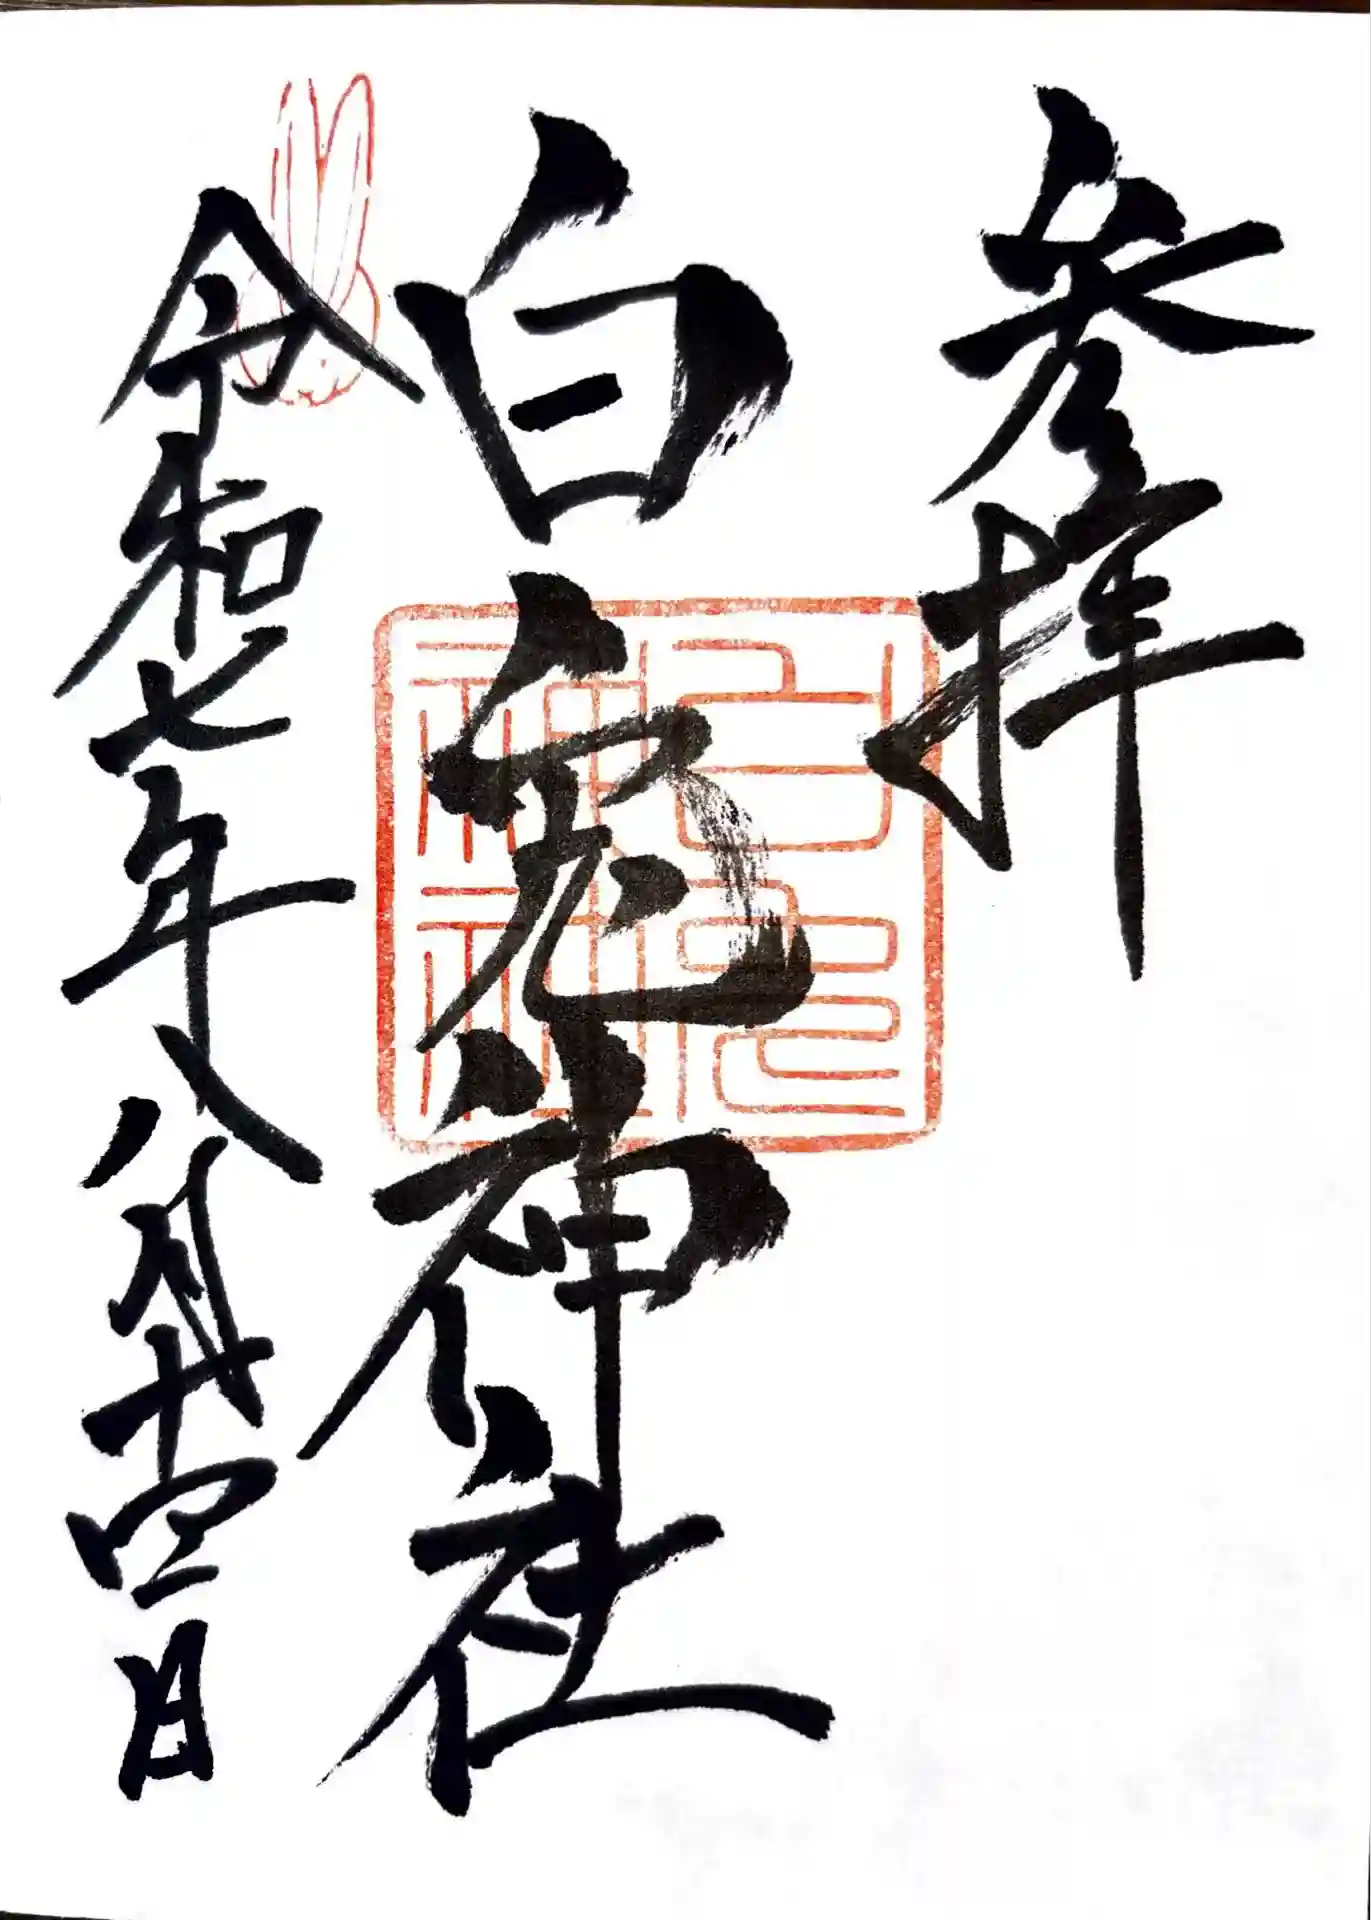 参拝
白兎神社
白兎神社
令和七年八月十四日